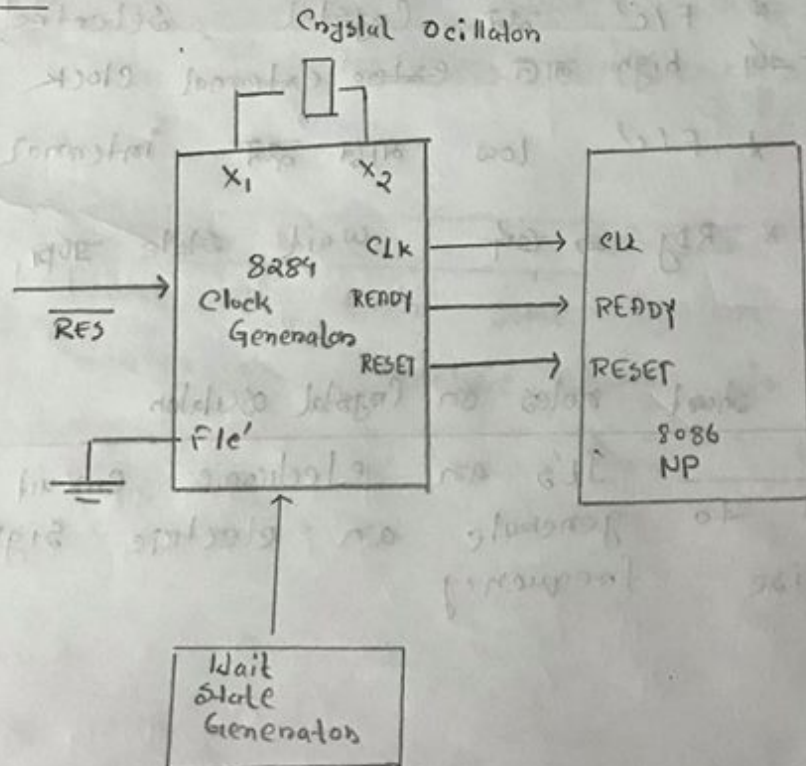 Crystal Ocillator
X1 X2
8284
Clock
Generator
CLK
READY
RESET
RES
F/c'
CLK
READY
RESET
8086
MP
Wait
State
Generator